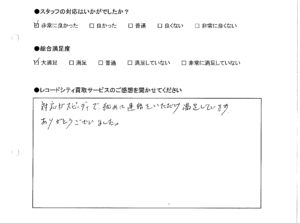 ●スタッフの対応はいかがでしたか？
☑非常に良かった □良かった □普通 □良くない □非常に良くない
●総合満足度
☑大満足 □満足 □普通 □満足していない □非常に満足していない
●レコードシティ買取サービスのご感想を聞かせてください
対応がスピーディで初めに連絡をいただけ満足しています
ありがとうございました。